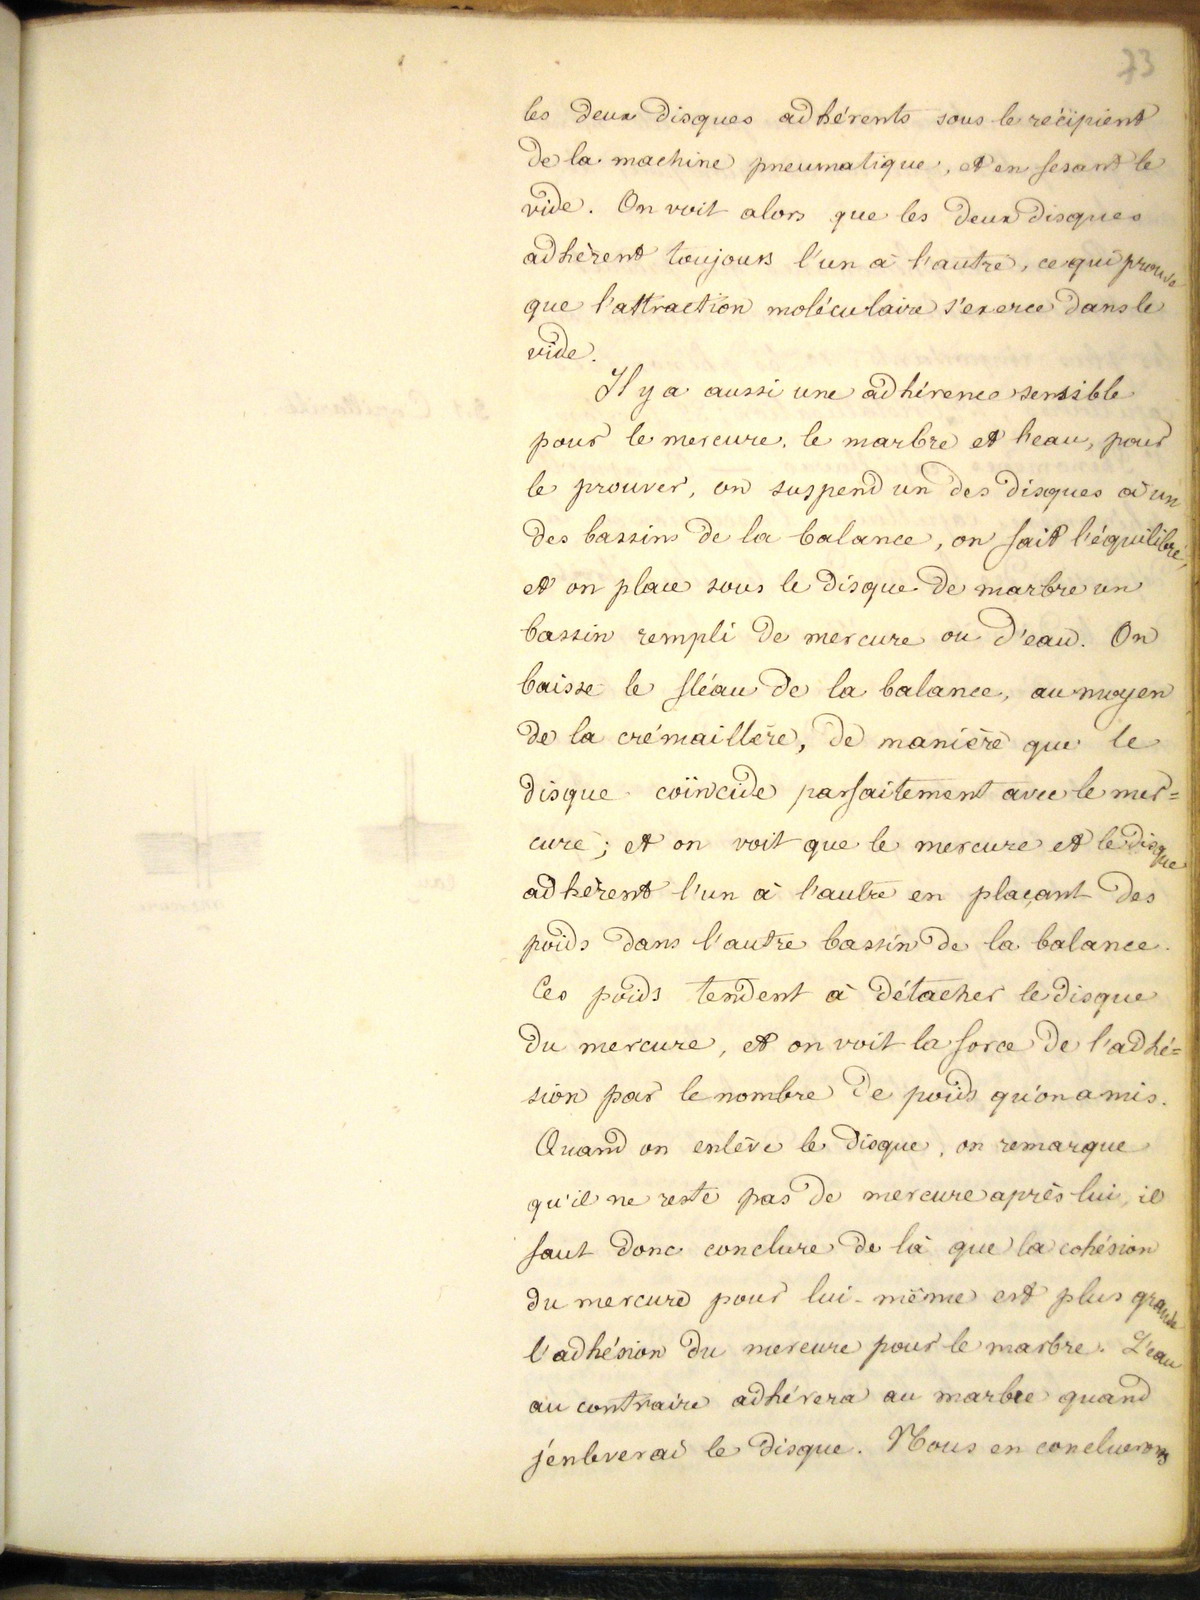 73
les deux disques adhérents sous le récipient
de la machine pneumatique, et en fesant le
vide. On voit alors que les deux disques
adhèrent toujours l'un à l'autre, ce qui prouve
que l'attraction moléculaire s'exerce dans le
vide.
Il y a aussi une adhérence sensible
pour le mercure, le marbre et l'eau, pour
le prouver, on suspend un des disques à un
des bassins de la balance, on fait l'équilibre,
et on place sous le disque de marbre un
bassin rempli de mercure ou d'eau. On
baisse le fléau de la balance, au moyen
de la crémaillère, de manière que le
disque coïncide parfaitement avec le mer=
cure; et on voit que le mercure et le disque
adhèrent l'un à l'autre en plaçant des
poids dans l'autre bassin de la balance.
Ces poids tendent à détacher le disque
du mercure, et on voit la force de l'adhé=
sion par le nombre de poids qu'on a mis.
Quand on enlève le disque, on remarque
qu'il ne reste pas de mercure après lui, il
faut donc conclure de là que la cohésion
du mercure pour lui-même est plus grande
l'adhésion du mercure pour le marbre. L'eau
au contraire adhérera au marbre quand
j'enleverai le disque. Nous en concluerons